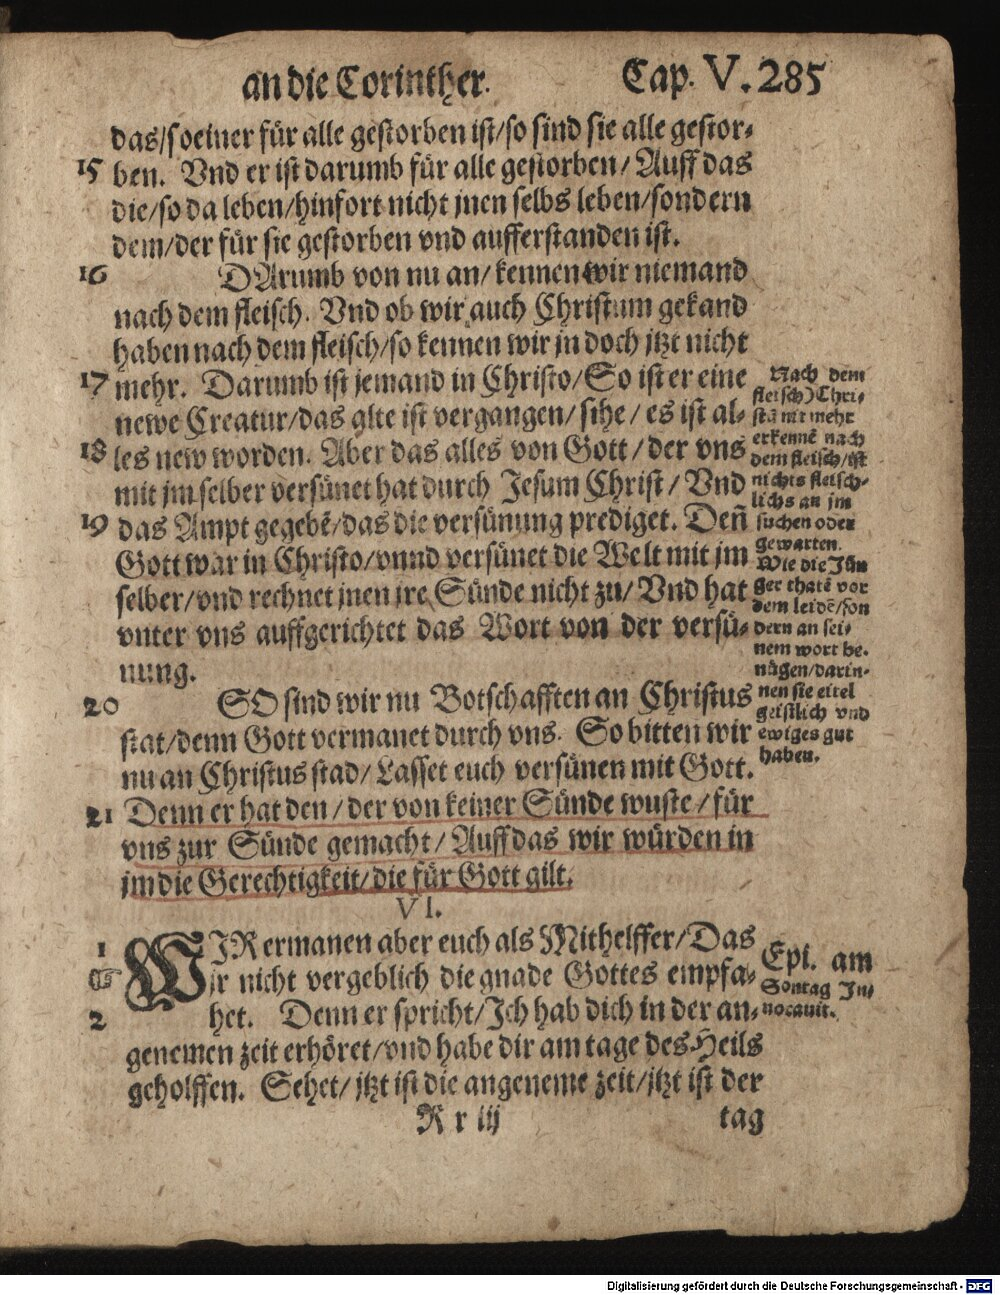 an die Corinther. Cap. V. 285
das/so einer für alle gestorben ist/so sind sie alle gestor-
15 ben. Vnd er ist darumb für alle gestorben/ Auff das
die/so da leben/hinfort nicht jnen selbs leben/sondern
dem/der für sie gestorben vnd aufferstanden ist.
16 DArumb von nu an/ kennen wir niemand
nach dem fleisch. Vnd ob wir auch Christum gekand
haben nach dem fleisch/so kennen wir jn doch jtzt nicht
17 mehr. Darumb ist jemand in Christo/So ist er eine
newe Creatur/das alte ist vergangen/ sihe/ es ist al-
18 les new worden. Aber das alles von Gott/ der vns
mit jm selber versünet hat durch Jesum Christ/ Vnd
19 das Ampt gegebē/das die versünung prediget. Deñ
Gott war in Christo/vnnd versünet die Welt mit jm
selber/vnd rechnet jnen jre Sünde nicht zu/ Vnd hat
vnter vns auffgerichtet das Wort von der versü-
nung.
20 SO sind wir nu Botschafften an Christus
stat/denn Gott vermanet durch vns. So bitten wir
nu an Christus stad/ Lasset euch versünen mit Gott.
21 Denn er hat den/ der von keiner Sünde wuste/ für
vns zur Sünde gemacht/ Auff das wir würden in
jm die Gerechtigkeit/die für Gott gilt.
Nach dem
fleisch) Chri-
stū nit mehr
erkennē nach
dem fleisch/ist
nichts fleisch-
lichs an jm
suchen oder
gewarten.
Wie die Jün
ger thatē vor
dem leidē/son
dern an sei-
nem wort be-
nügen/darin-
nen sie eitel
geistlich vnd
ewiges gut
haben.
VI.
1 WIR ermanen aber euch als Mithelffer/Das
☞ jr nicht vergeblich die gnade Gottes empfa-
2 het. Denn er spricht/Ich hab dich in der an-
genemen zeit erhöret/vnd habe dir am tage des Heils
geholffen. Sehet/ jtzt ist die angeneme zeit/jtzt ist der
Epi. am
Sontag In-
uocauit.
R r iij tag
Digitalisierung gefördert durch die Deutsche Forschungsgemeinschaft - DFG